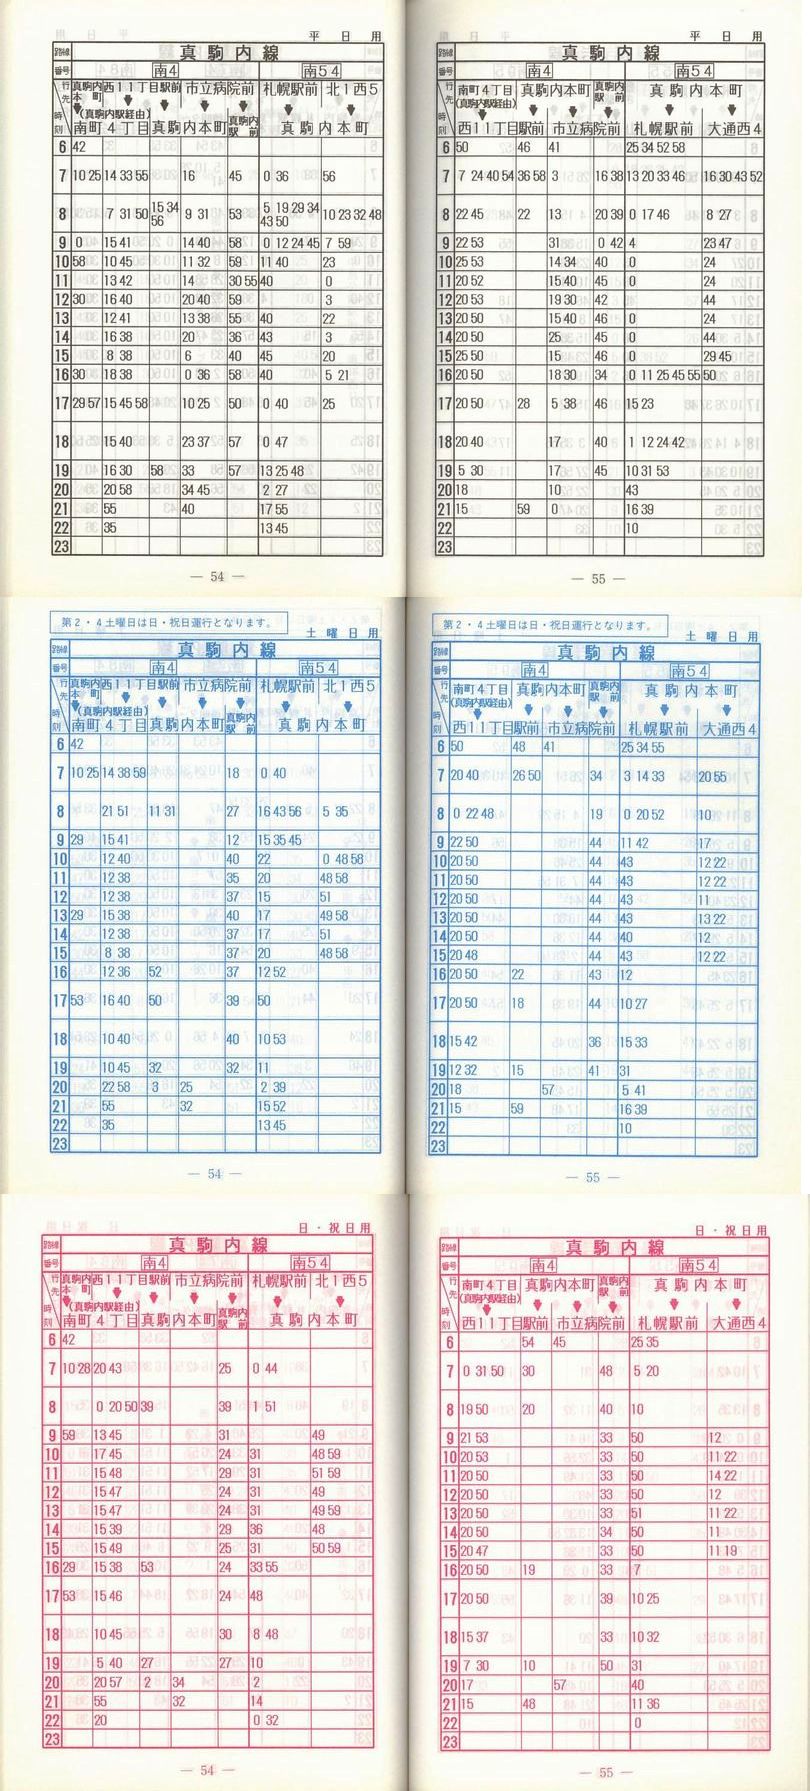 平日用
路線 真駒内線
番号 南4 南54
行先 真駒内本町 西11丁目駅前 市立病院前 札幌駅前 北1西5
(真駒内駅経由)
時刻 南町4丁目 真駒内本町 真駒内駅前 真駒内本町
6 42
7 10 25 14 33 55 16 45 0 36 56
8 7 31 50 15 34 56 9 31 53 5 19 29 34 43 50 10 23 32 48
9 0 15 41 14 40 58 0 12 24 45 7 59
10 58 10 45 11 32 59 11 40 23
11 13 42 14 30 55 40 0
12 30 16 40 20 40 59 40 3
13 12 41 13 38 55 40 22
14 16 38 20 36 43 3
15 8 38 6 40 45 20
16 30 18 38 0 36 58 40 5 21
17 29 57 15 45 58 10 25 50 0 40 25
18 15 40 23 37 57 0 47
19 16 30 58 33 57 13 25 48
20 20 58 34 45 2 27
21 55 40 17 55
22 35 13 45
23
— 54 —
平日用
路線 真駒内線
番号 南4 南54
行先 南町4丁目 真駒内本町 真駒内駅前 真駒内本町
(真駒内駅経由)
時刻 西11丁目駅前 市立病院前 札幌駅前 大通西4
6 50 46 41 25 34 52 58
7 7 24 40 54 36 58 3 16 38 13 20 33 46 16 30 43 52
8 22 45 22 13 20 39 0 17 46 8 27
9 22 53 31 0 42 4 23 47
10 25 53 14 34 40 0 24
11 20 52 15 40 45 0 24
12 20 53 19 30 42 4 44
13 20 50 15 40 46 0 24
14 20 50 25 45 0 44
15 25 50 15 46 0 29 45
16 20 50 18 30 34 0 11 25 45 55 50
17 20 50 28 5 38 46 15 23
18 20 40 17 40 1 12 24 42
19 5 30 17 45 10 31 53
20 18 10 43
21 15 59 0 16 39
22 10
23
— 55 —
第2・4土曜日は日・祝日運行となります。
土曜日用
路線 真駒内線
番号 南4 南54
行先 真駒内本町 西11丁目駅前 市立病院前 札幌駅前 北1西5
(真駒内駅経由)
時刻 南町4丁目 真駒内本町 真駒内駅前 真駒内本町
6 42
7 10 25 14 38 59 18 0 40
8 21 51 11 31 27 16 43 56 5 35
9 29 15 41 12 15 35 45
10 12 40 40 22 0 48 58
11 12 38 35 20 48 58
12 12 38 37 15 51
13 29 15 38 40 17 49 58
14 12 38 37 17 51
15 8 38 37 20 48 58
16 12 36 52 37 12 52
17 53 16 40 50 39 50
18 10 40 40 10 53
19 10 45 32 32 11
20 22 58 3 25 2 39
21 55 32 15 52
22 35 13 45
23
— 54 —
第2・4土曜日は日・祝日運行となります。
土曜日用
路線 真駒内線
番号 南4 南54
行先 南町4丁目 真駒内本町 真駒内駅前 真駒内本町
(真駒内駅経由)
時刻 西11丁目駅前 市立病院前 札幌駅前 大通西4
6 50 48 41 25 34 55
7 20 40 26 50 34 3 14 33 20 55
8 0 22 48 19 0 20 52 10
9 22 50 44 11 42 17
10 20 50 44 43 12 22
11 20 50 44 43 12 22
12 20 50 44 43 11
13 20 50 44 43 13 22
14 20 50 44 40 12
15 20 48 44 43 12 22
16 20 50 22 43 12
17 20 50 18 44 10 27
18 15 42 36 15 33
19 12 32 15 41 31
20 18 57 5 41
21 15 59 16 39
22 10
23
— 55 —
日・祝日用
路線 真駒内線
番号 南4 南54
行先 真駒内本町 西11丁目駅前 市立病院前 札幌駅前 北1西5
(真駒内駅経由)
時刻 南町4丁目 真駒内本町 真駒内駅前 真駒内本町
6 42
7 10 28 20 43 25 0 44
8 0 20 50 39 39 1 51
9 59 13 45 31 49
10 17 45 24 31 48 59
11 15 48 29 31 51 59
12 15 47 24 31 49
13 15 47 24 31 49 59
14 15 39 29 36 48
15 15 49 25 31 50 59
16 29 15 38 53 24 33 55
17 53 15 46 24 48
18 10 45 30 8 48
19 5 40 27 27 10
20 20 57 2 34 2
21 55 32 14
22 20 0 32
23
— 54 —
日・祝日用
路線 真駒内線
番号 南4 南54
行先 南町4丁目 真駒内本町 真駒内駅前 真駒内本町
(真駒内駅経由)
時刻 西11丁目駅前 市立病院前 札幌駅前 大通西4
6 54 45 25 35
7 0 31 50 30 48 5 20
8 19 50 20 40 10
9 21 53 33 50 12
10 20 53 33 50 11 22
11 20 50 33 50 14 22
12 20 50 33 50 12
13 20 50 33 51 11 22
14 20 50 34 50 11
15 20 47 33 50 11 19
16 20 50 19 33 7
17 20 50 39 10 25
18 15 37 33 10 32
19 7 30 10 50 31
20 17 57 40
21 15 48 11 36
22 0
23
— 55 —